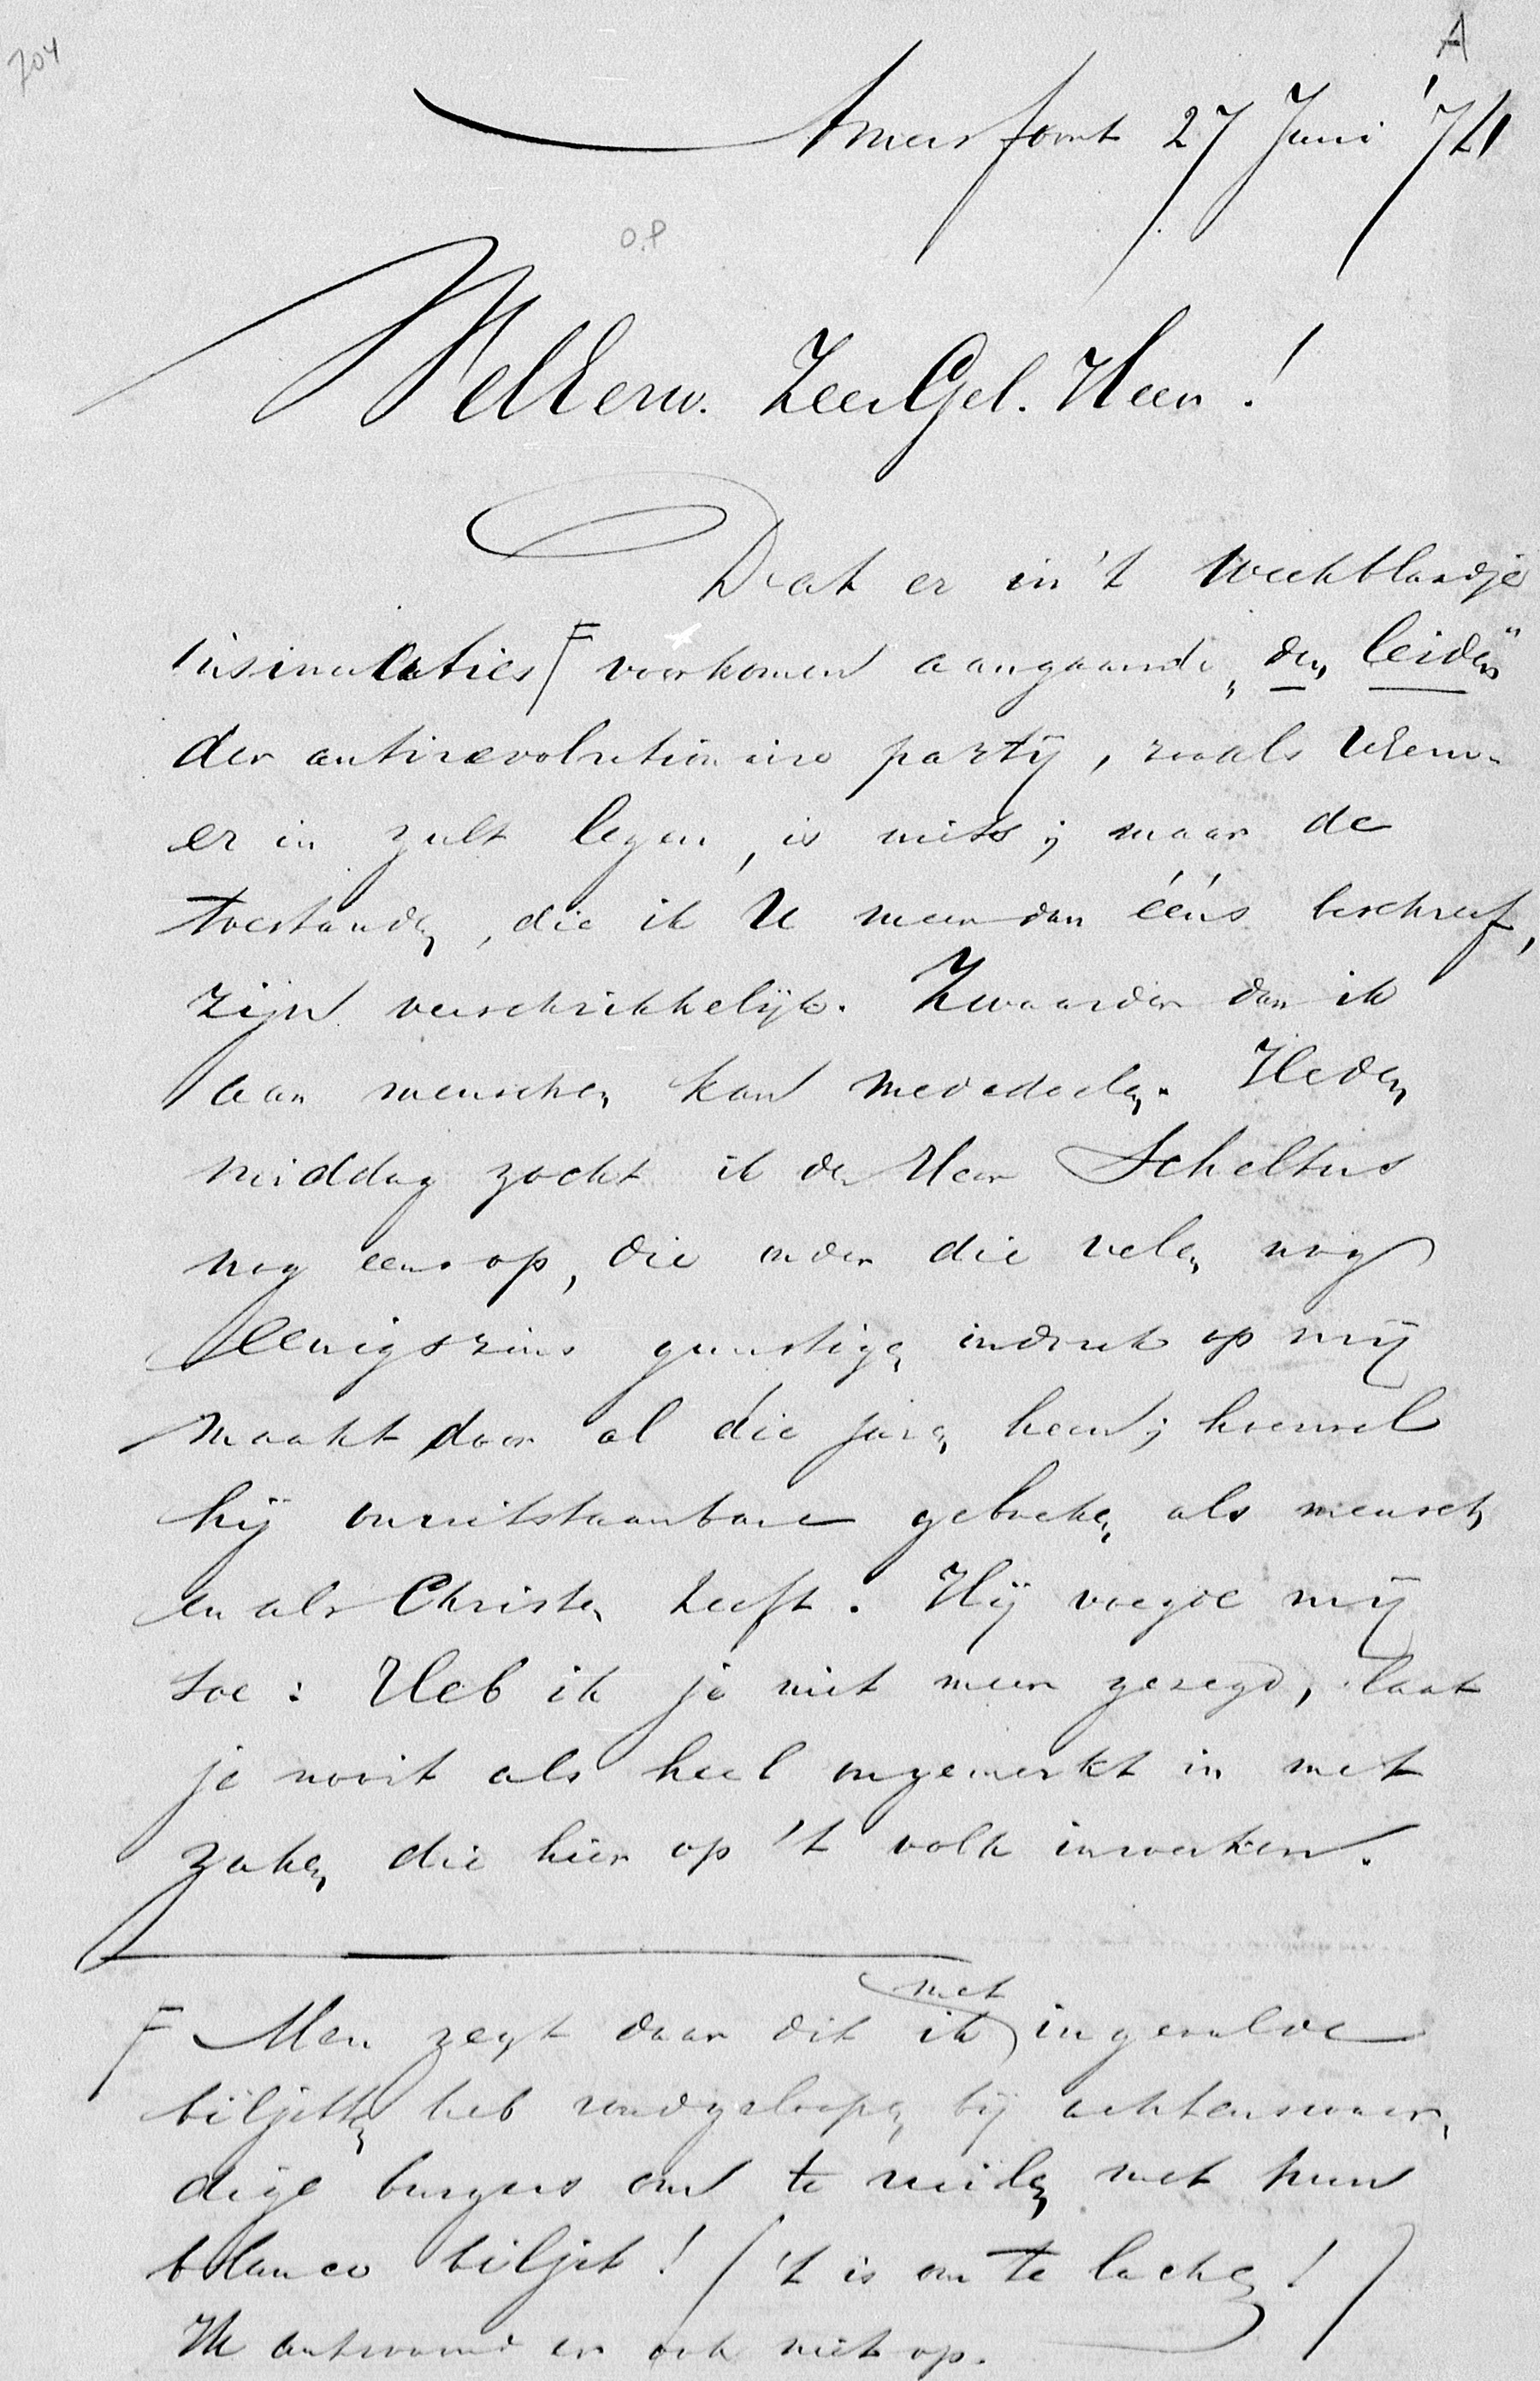 704
A
Amersfoort 27 Juni '74
O.P
WelEerw. ZeerGel. Heer!
Dat er in 't weekblaadje
insinuaties F voorkomen aangaande „den leider"
der antirevolutionaire partij, zooals UEerw.
er in zult lezen, is niets; maar de
toestanden, die ik U meer dan ééns beschreef,
zijn verschrikkelijk. Zwaarder dan ik
aan menschen kan mededeelen. Heden
middag zocht ik den Heer Scheltus
nog eens op, die onder die velen nog
eenigszins gunstigen indruk op mij
maakt door al die jaren heen; hoewel
hij onuitstaanbare gebreken als mensch
en als Christen heeft. Hij voegde mij
toe: Heb ik je niet meer gezegd, laat
je nooit als heel ongemerkt in met
zaken die hier op 't volk inwerken.
F Men zegt daar dit ik met ingevulde
biljetten heb rondgeloopen bij achtenswaar-
dige burgers om te ruilen met hun
blanco biljet! ('t is om te lachen!)
Ik antwoord er ook niet op.